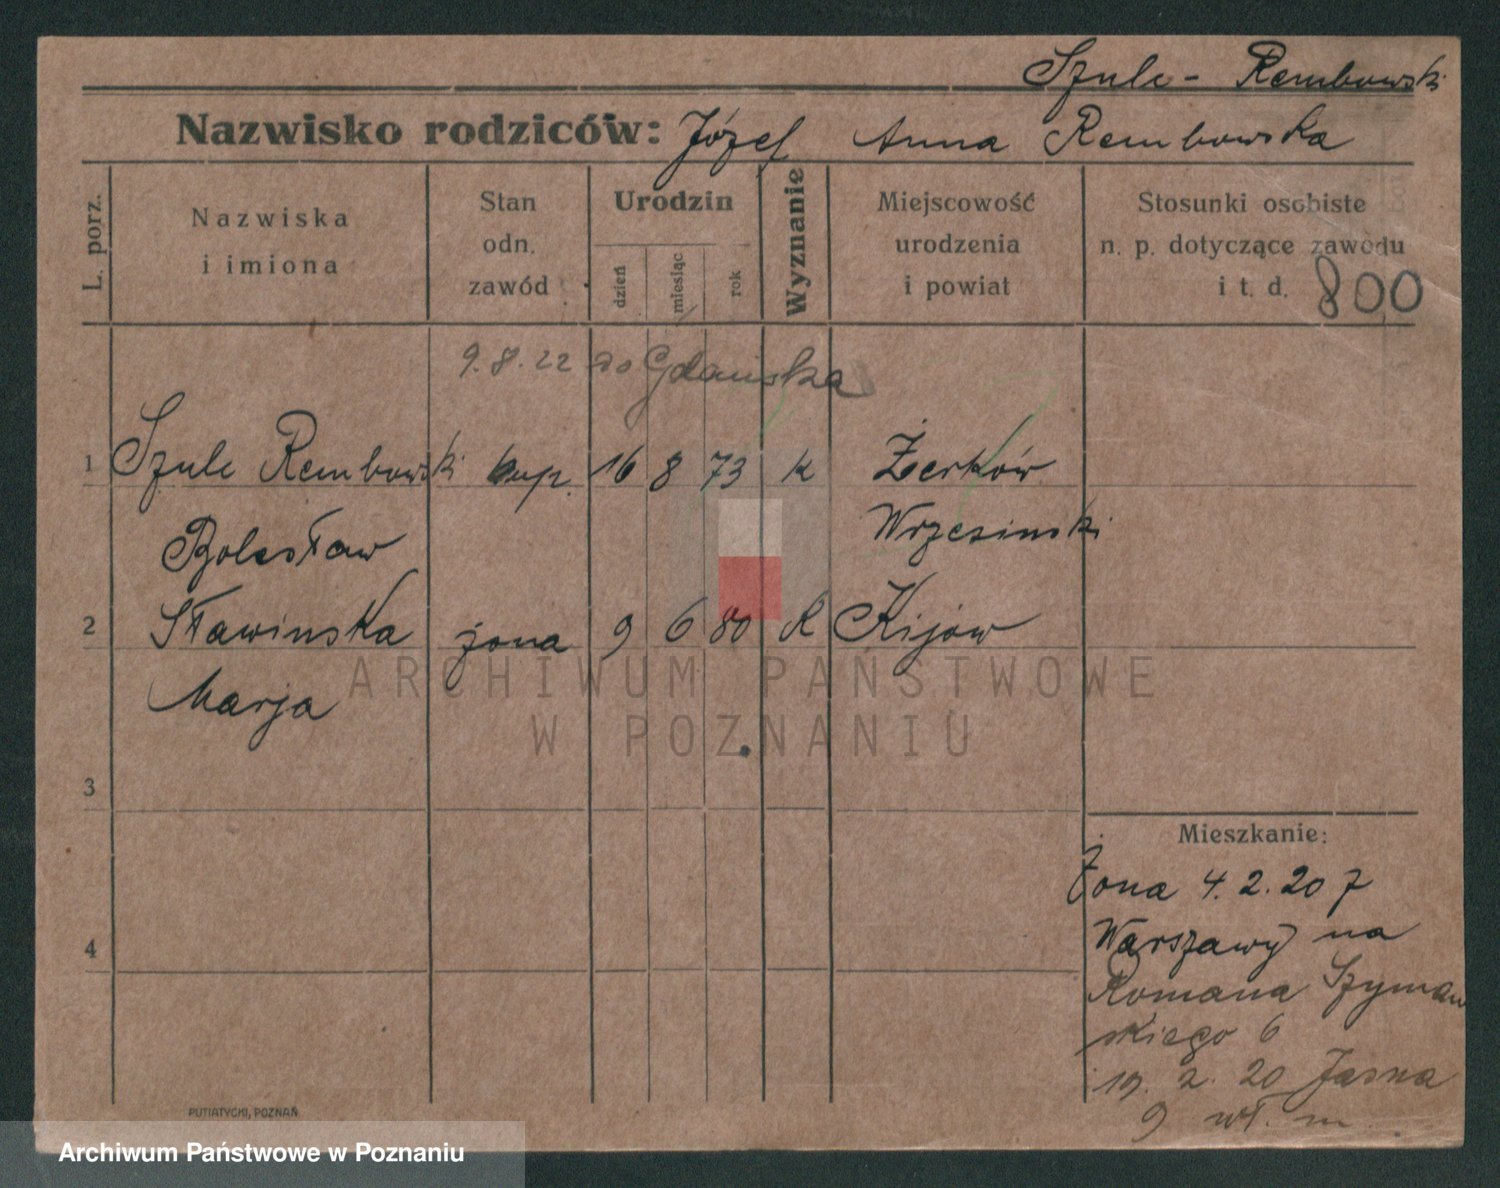 Szulc - Rembowski
Nazwisko rodziców: Józef Anna Rembowska
L. porz.
Nazwiska
i imiona
Stan
odn.
zawód
Urodzin
dzień
miesiąc
rok
Wyznanie
Miejscowość
urodzenia
i powiat
Stosunki osobiste
n. p. dotyczące zawodu
i t. d.
800
9.8.22 do Gdańska
1 Szulc Rembowski kup. 16 8 73 k Żerków
Bolesław Wrzesinski
2 Sławinska żona 9 6 80 k Kijow
Marja
ARCHIWUM PAŃSTWOWE
W POZNANIU
3
Mieszkanie:
Żona 4.2.20 z
Warszawy na
4
Romana Szyman
skiego 6
19. 2. 20 Jasna
9 wł. m.
PUTIATYCKI, POZNAŃ
Archiwum Państwowe w Poznaniu